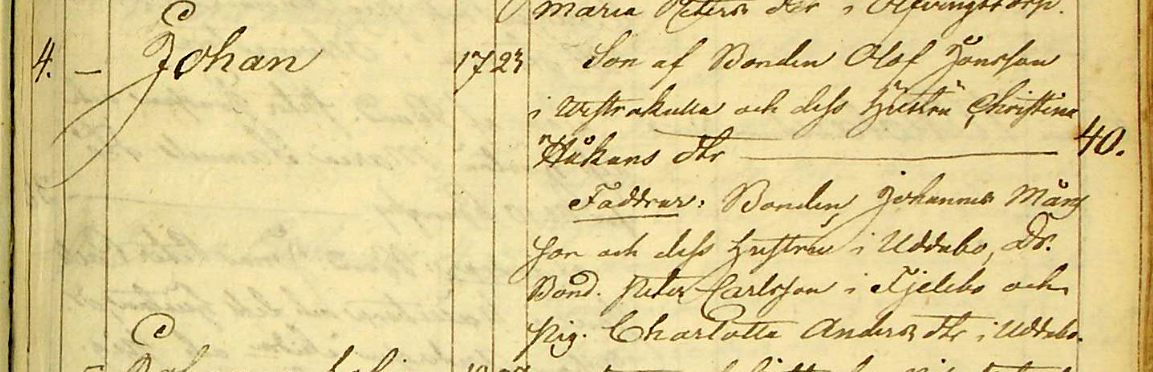 Maria Peters dtr i
4. – Johan 17 23 Son af Bonden Olof Jonsson
i Westrakulla och dess Hustru Christina
Håkans dtr — 40.
Faddrar: Bonden Johannes Måns
son och dess Hustru i Uddebo, Dr.
Bond. Peter Carlsson i Fjelebo och
Pig. Charlotta Anders dtr i Uddebo.